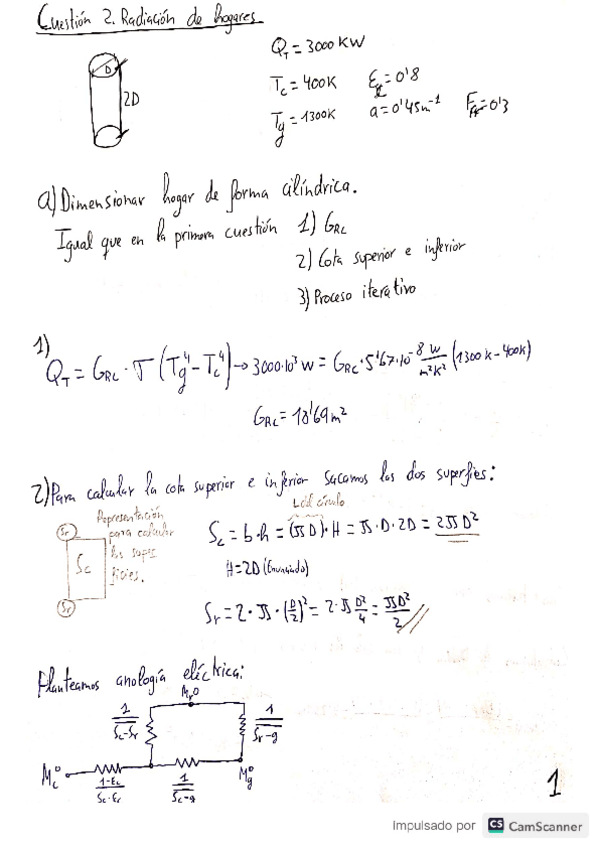 Cuestión 2. Radiación de hogares
D
2D
Q_T = 3000 KW
T_c = 400K
T_g = 1300K
a = 0'45m^-1
a) Dimensionar hogar de forma cilíndrica.
Igual que en la primera cuestión
1) G_RC
2) Cota superior e inferior
3) Proceso iterativo
1)
Q_T = G_RC · σ (T_g^4 - T_c^4) → 3000·10^3 W = G_RC · 5'67·10^-8 W/m²K² (1300K - 400K)
G_RC = 18'69 m²
2) Para calcular la cota superior e inferior sacamos las dos superfies:
Representación
para calcular
las super
ficies.
Sr
Sc
Sr
S_c = b·h = (π D)·H = π·D·2D = 2πD²
H=2D (Enunciado)
S_r = 2·π·(D/2)² = 2·π D²/4 = πD²/2 //
Planteamos anología eléctrica:
M_r°
1/Sc-Sr
1/Sr-g
M_c°
1/Sc-g
M_g°
1
Impulsado por CS CamScanner